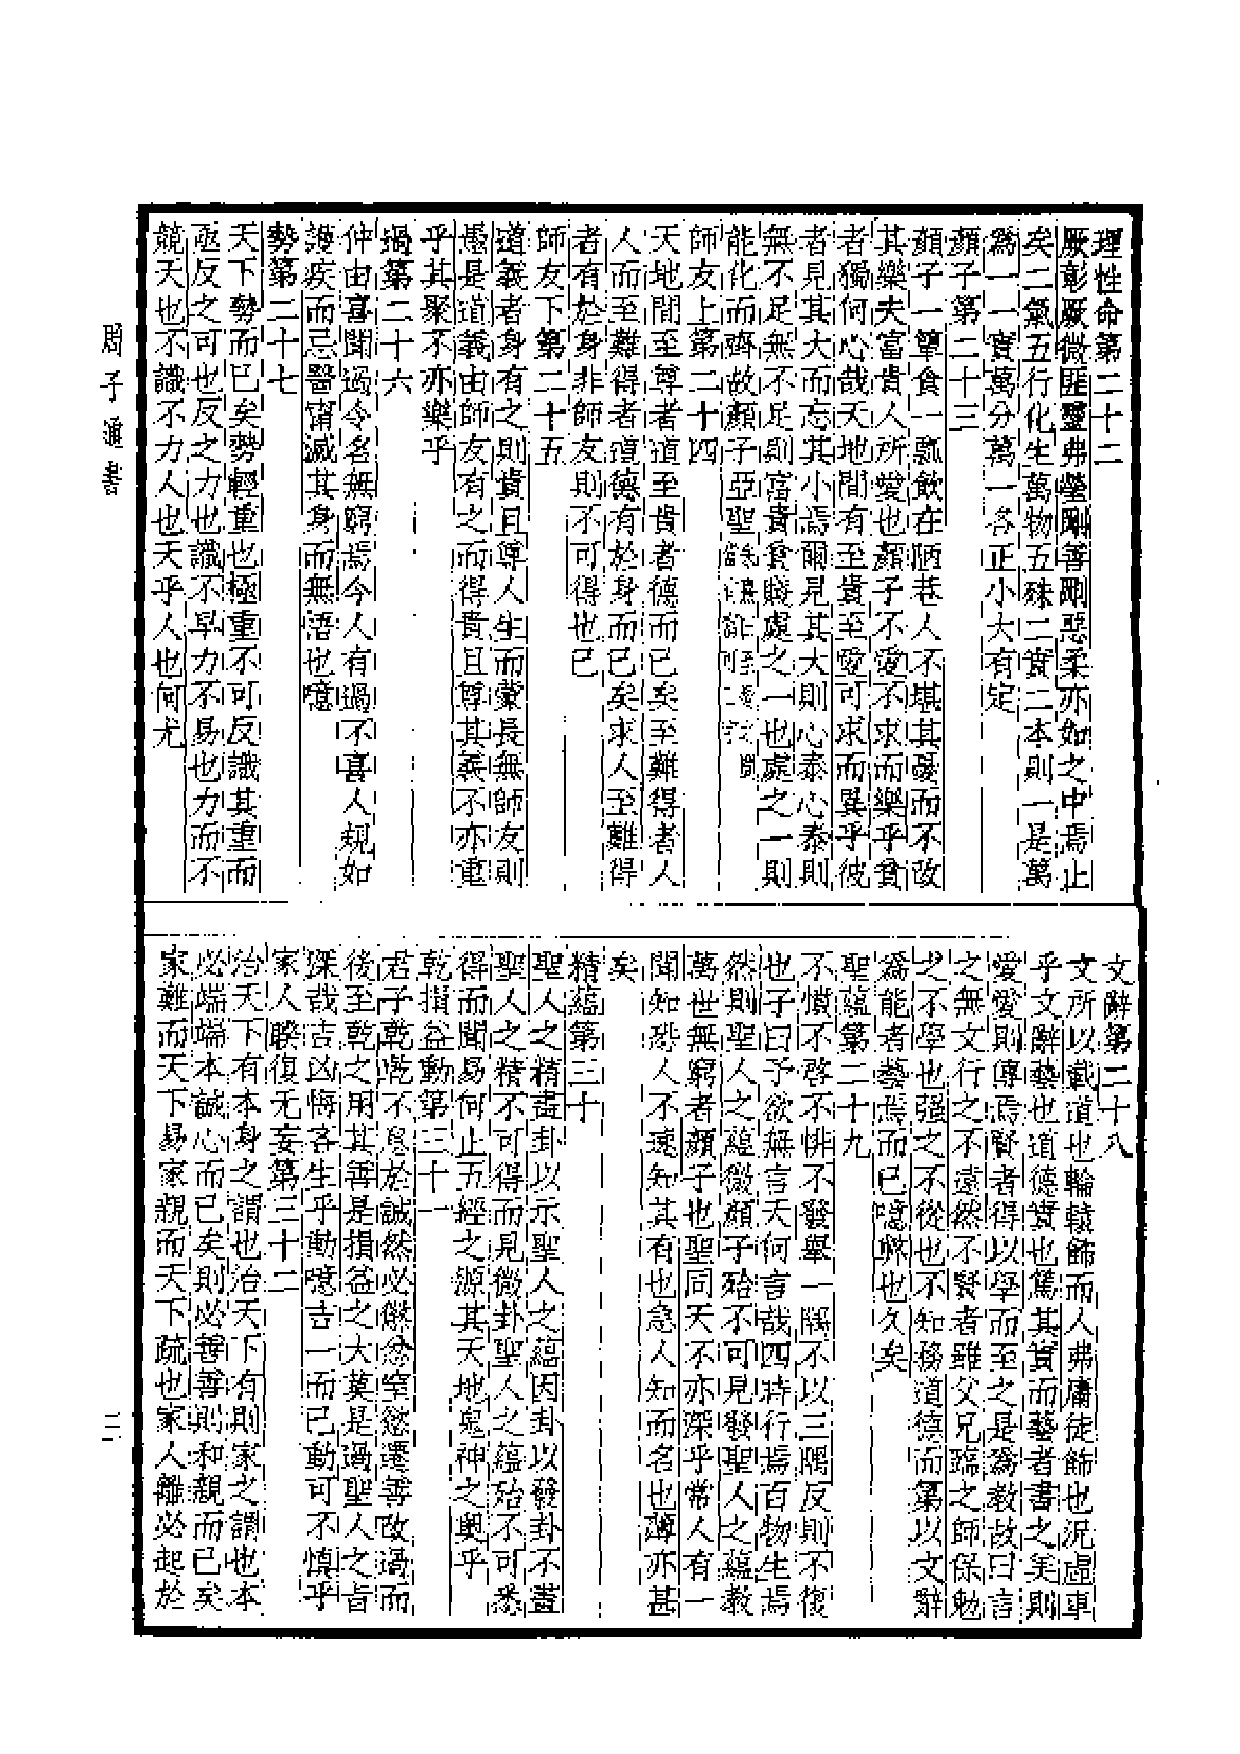 理性命第二十二
厥彰厥微匪靈弗瑩剛善剛惡柔亦如之中焉止
矣二氣五行化生萬物五殊二實二本則一是萬
爲一一實萬分萬一各正小大有定
顏子第二十三
顏子一簞食一瓢飲在陋巷人不堪其憂而不改
其樂夫富貴人所愛也顏子不愛不求而樂乎貧
者獨何心哉天地間有至貴至愛可求而異乎彼
者見其大而忘其小焉爾見其大則心泰心泰則
無不足無不足則富貴貧賤處之一也處之一則
能化而齊故顏子亞聖
師友上第二十四
天地間至尊者道至貴者德而已矣至難得者人
人而至難得者道德有於身而已矣求人至難得
者有於身非師友則不可得也已
師友下第二十五
道義者身有之則貴且尊人生而蒙長無師友則
愚是道義由師友有之而得貴且尊其義不亦重
乎其聚不亦樂乎
過第二十六
仲由喜聞過令名無窮焉今人有過不喜人規如
護疾而忌醫寧滅其身而無悟也噫
勢第二十七
天下勢而已矣勢輕重也極重不可反識其重而
亟反之可也反之力也識不早力不易也力而不
競天也不識不力人也天乎人也何尤
文辭第二十八
文所以載道也輪轅飾而人弗庸徒飾也況虛車
乎文辭藝也道德實也篤其實而藝者書之美則
愛愛則傳焉賢者得以學而至之是爲教故曰言
之無文行之不遠然不賢者雖父兄臨之師保勉
之不學也强之不從也不知務道德而第以文辭
爲能者藝焉而已噫弊也久矣
聖蘊第二十九
不憤不啓不悱不發舉一隅不以三隅反則不復
也子曰予欲無言天何言哉四時行焉百物生焉
然則聖人之蘊微顏子殆不可見發聖人之蘊教
萬世無窮者顏子也聖同天不亦深乎常人有一
聞知恐人不速知其有也急人知而名也薄亦甚
矣
精蘊第三十
聖人之精畫卦以示聖人之蘊因卦以發卦不畫
聖人之精不可得而見微卦聖人之蘊殆不可悉
得而聞易何止五經之源其天地鬼神之奧乎
乾損益動第三十一
君子乾乾不息於誠然必懲忿窒慾遷善改過而
後至乾之用其善是損益之大莫是過聖人之旨
深哉吉凶悔吝生乎動噫吉一而已動可不愼乎
家人睽復无妄第三十二
治天下有本身之謂也治天下有則家之謂也本
必端端本誠心而已矣則必善善則和親而已矣
家難而天下易家親而天下疏也家人離必起於
周子通書